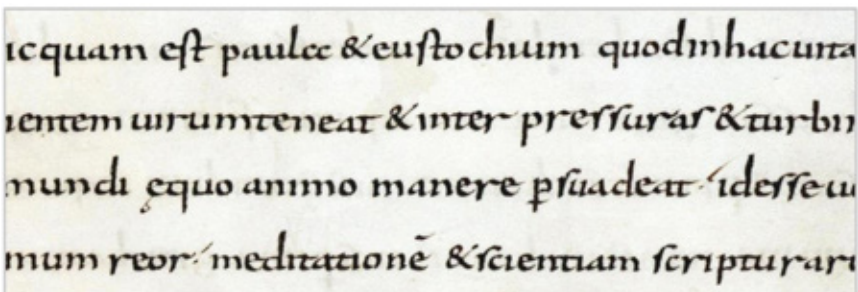 icquam est paulae &eustochium quodinhacuita
ientem uirumteneat &inter pressuras &turbin
mundi ęquo animo manere ꝑsuadeat · idesseu
mum reor · meditationē &scientiam scripturaru